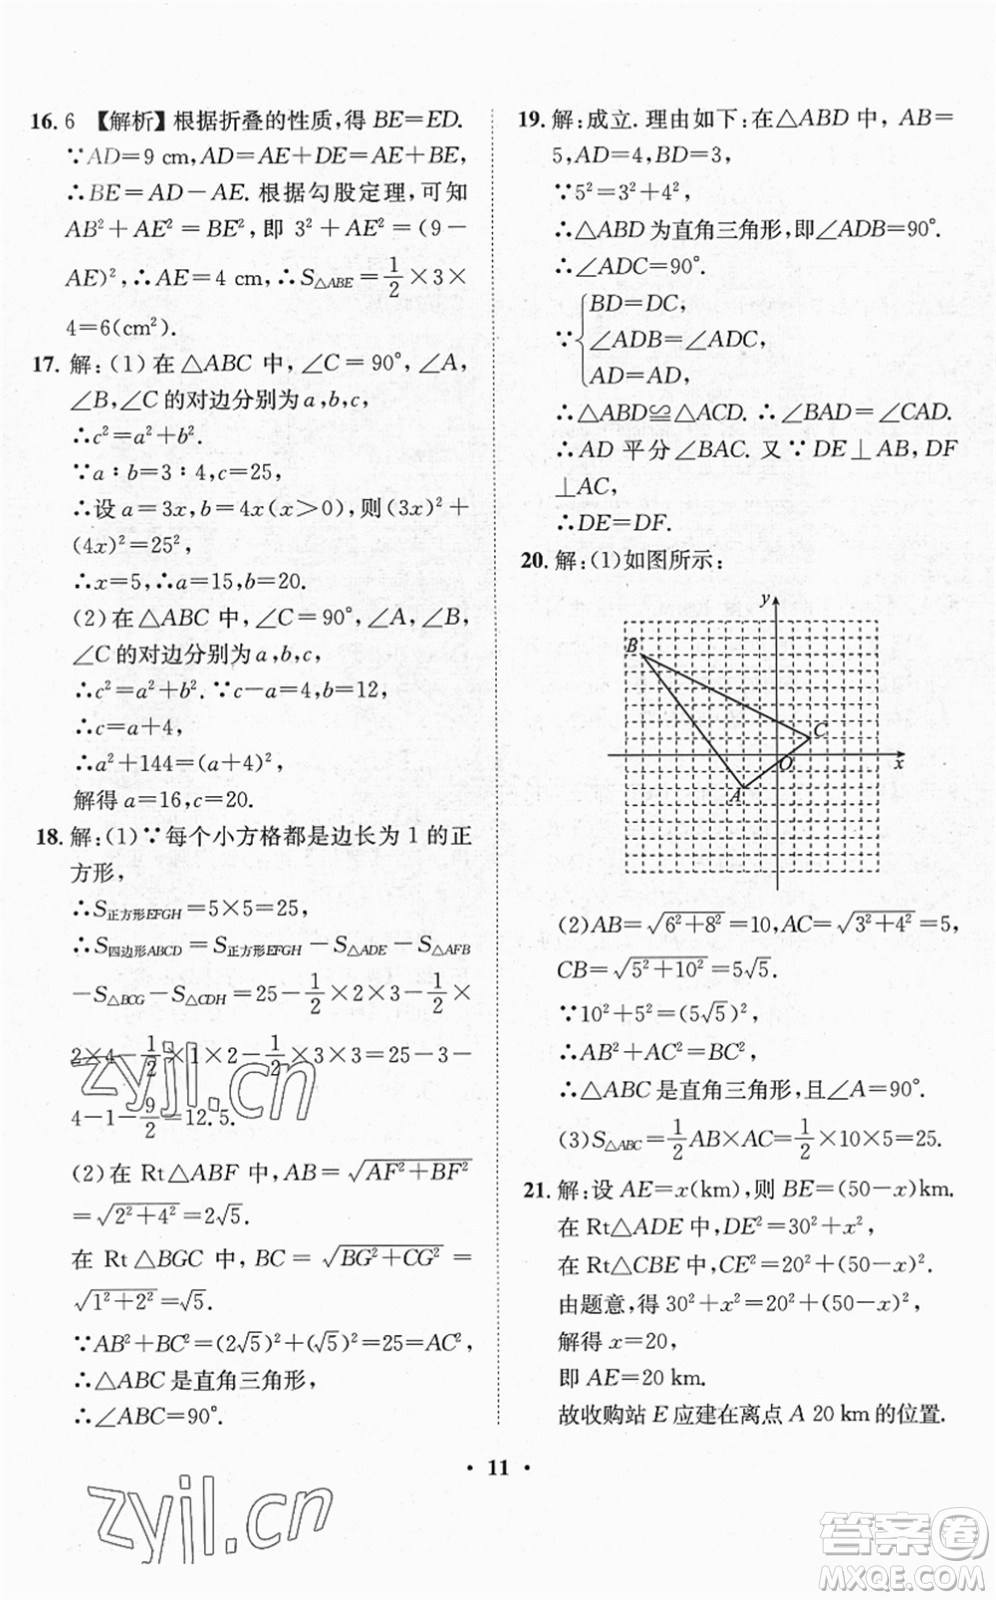 16. 6 【解析】根据折叠的性质,得 BE=ED.
∵AD=9 cm,AD=AE+DE=AE+BE,
∴BE=AD-AE. 根据勾股定理,可知
AB²+AE²=BE²,即 3²+AE²=(9-
AE)²,∴AE=4 cm,∴S△ABE=1/2×3×
4=6(cm²).
17. 解:(1)在△ABC 中,∠C=90°,∠A,
∠B,∠C的对边分别为a,b,c,
∴c²=a²+b².
∵a∶b=3∶4,c=25,
∴设 a=3x,b=4x(x>0),则(3x)²+
(4x)²=25²,
∴x=5,∴a=15,b=20.
(2)在△ABC中,∠C=90°,∠A,∠B,
∠C的对边分别为a,b,c,
∴c²=a²+b². ∵c-a=4,b=12,
∴c=a+4,
∴a²+144=(a+4)²,
解得a=16,c=20.
18. 解:(1)∵每个小方格都是边长为1的正
方形,
∴S正方形EFGH=5×5=25,
∴S四边形ABCD=S正方形EFGH-S△ADE-S△AFB
-S△BCG-S△CDH=25-1/2×2×3-1/2×
2×4-1/2×1×2-1/2×3×3=25-3-
4-1-9/2=12.5.
(2)在 Rt△ABF 中,AB=√(AF²+BF²)
=√(2²+4²)=2√5.
在 Rt△BGC 中,BC=√(BG²+CG²)=
√(1²+2²)=√5.
∵AB²+BC²=(2√5)²+(√5)²=25=AC²,
∴△ABC是直角三角形,
∴∠ABC=90°.
19. 解:成立. 理由如下:在△ABD中,AB=
5,AD=4,BD=3,
∵5²=3²+4²,
∴△ABD为直角三角形,即∠ADB=90°.
∴∠ADC=90°.
BD=DC,
∵{∠ADB=∠ADC,
AD=AD,
∴△ABD≌△ACD. ∴∠BAD=∠CAD.
∴AD 平分∠BAC. 又∵DE⊥AB,DF
⊥AC,
∴DE=DF.
20. 解:(1)如图所示:
y
B
C
O
x
A
(2)AB=√(6²+8²)=10,AC=√(3²+4²)=5,
CB=√(5²+10²)=5√5.
∵10²+5²=(5√5)²,
∴AB²+AC²=BC²,
∴△ABC是直角三角形,且∠A=90°.
(3)S△ABC=1/2AB×AC=1/2×10×5=25.
21. 解:设AE=x(km),则BE=(50-x)km.
在Rt△ADE中,DE²=30²+x²,
在Rt△CBE中,CE²=20²+(50-x)².
由题意,得30²+x²=20²+(50-x)²,
解得x=20,
即AE=20 km.
故收购站E应建在离点A 20 km的位置.
• 11 •
zyjl.cn
zyjl.cn
答案卷
MXQE.COM